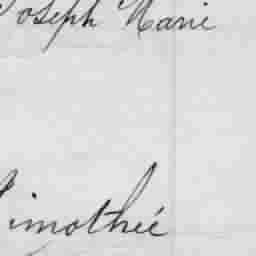 Joseph Marie
Timothée